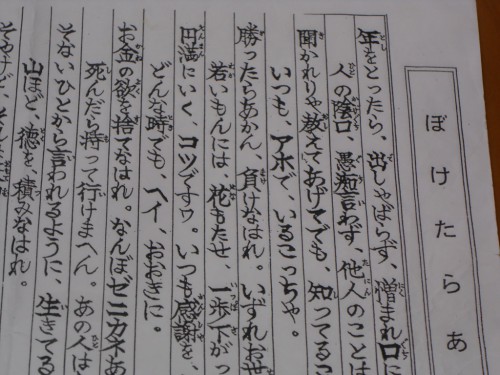 ぼけたらあ
年をとったら、出しゃばらず、憎まれ口に
人の陰口、愚痴言わず、他人のことは
聞かれりゃ教えてあげてでも、知ってるこ
いつも、アホで、いるこっちゃ。
勝ったらあかん、負けなはれ。いずれお世
若いもんには、花もたせ、一歩下がっ
円満にいく、コツですワ。いつも感謝を、
どんな時でも、ヘイ、おおきに。
お金の欲を捨てなはれ。なんぼゼニカネあ
死んだら持って行けまへん。あの人は
そないひとから言われるように、生きてる
山ほど、徳を、積みなはれ。